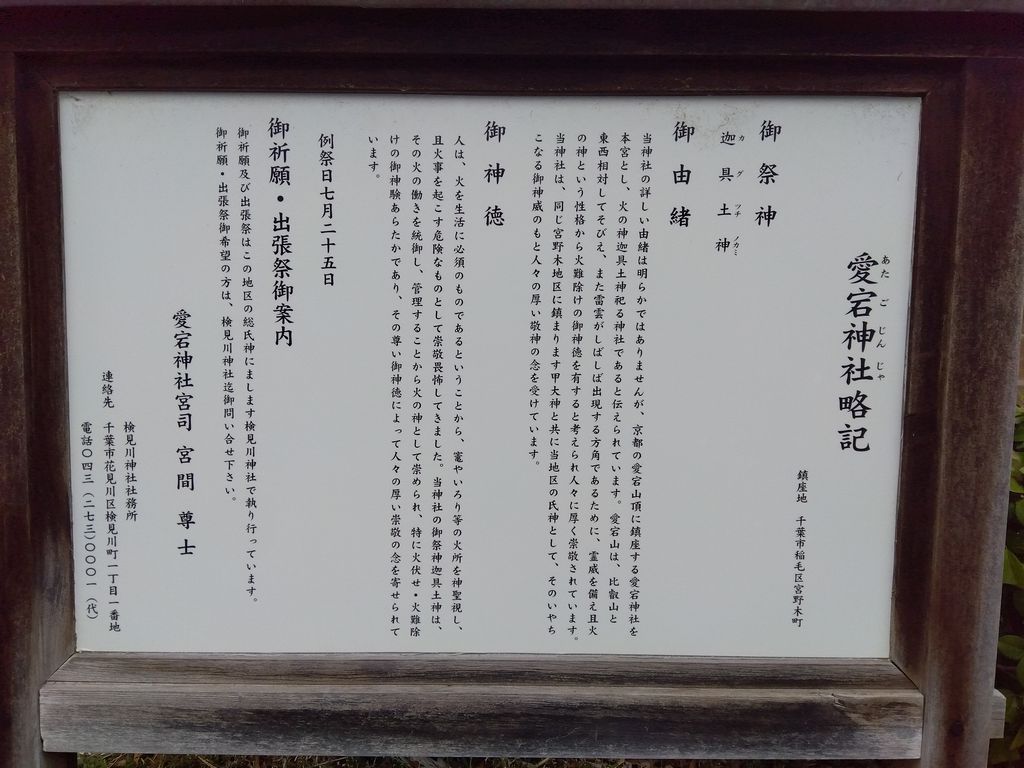 愛宕神社略記
あたごじんじゃ
鎮座地　千葉市稲毛区宮野木町
御祭神
迦具土神
カグツチノカミ
御由緒
当神社の詳しい由緒は明らかではありませんが、京都の愛宕山頂に鎮座する愛宕神社を
本宮とし、火の神迦具土神祀る神社であると伝えられています。愛宕山は、比叡山と
東西相対してそびえ、また雷雲がしばしば出現する方角であるために、霊威を備え且火
の神という性格から火難除けの御神徳を有すると考えられ人々に厚く崇敬されています。
当神社は、同じ宮野木地区に鎮まります甲大神と共に当地区の氏神として、そのいやち
こなる御神威のもと人々の厚い敬神の念を受けています。
御神徳
人は、火を生活に必須のものであるということから、竈やいろり等の火所を神聖視し、
且火事を起こす危険なものとして崇敬畏怖してきました。当神社の御祭神迦具土神は、
その火の働きを統御し、管理することから火の神として崇められ、特に火伏せ・火難除
けの御神験あらたかであり、その尊い御神徳によって人々の厚い崇敬の念を寄せられて
います。
例祭日七月二十五日
御祈願・出張祭御案内
御祈願及び出張祭はこの地区の総氏神にまします検見川神社で執り行っています。
御祈願・出張祭御希望の方は、検見川神社迄御問い合せ下さい。
愛宕神社宮司　宮間　尊士
連絡先　検見川神社社務所
千葉市花見川区検見川町一丁目一番地
電話〇四三（二七三）〇〇〇一（代）